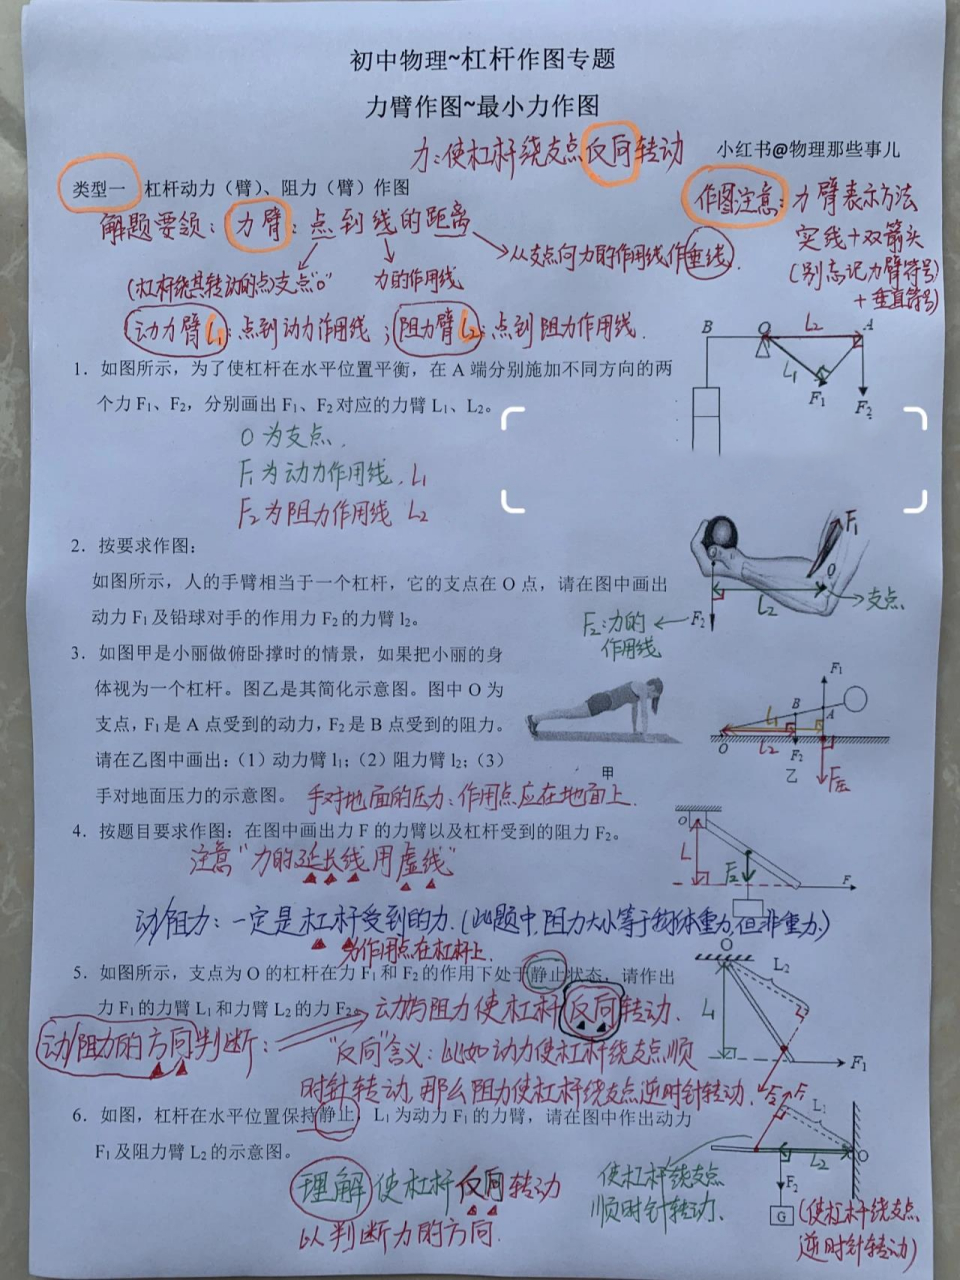 初中物理~杠杆作图专题
力臂作图~最小力作图
力：使杠杆绕支点反向转动
小红书@物理那些事儿
类型一 杠杆动力（臂）、阻力（臂）作图
作图注意：力臂表示方法
实线+双箭头
(别忘记力臂符号)
+垂直符号)
解题要领：力臂：点到线的距离
从支点向力的作用线作垂线.
(杠杆绕其转动的点)支点"o"
力的作用线
动力臂l₁：点到动力作用线；阻力臂l₂：点到阻力作用线.
B O L₂ A
L₁
F₁ F₂
1. 如图所示，为了使杠杆在水平位置平衡，在 A 端分别施加不同方向的两
个力 F₁、F₂，分别画出 F₁、F₂对应的力臂 L₁、L₂。
O为支点.
F₁为动力作用线. L₁
F₂为阻力作用线 L₂
2. 按要求作图：
如图所示，人的手臂相当于一个杠杆，它的支点在 O 点，请在图中画出
动力 F₁及铅球对手的作用力 F₂的力臂 l₂。
F₁
O
L₂
支点.
F₂
F₂:力的
作用线
3. 如图甲是小丽做俯卧撑时的情景，如果把小丽的身
体视为一个杠杆。图乙是其简化示意图。图中 O 为
支点，F₁是 A 点受到的动力，F₂是 B 点受到的阻力。
请在乙图中画出：（1）动力臂 l₁；（2）阻力臂 l₂；（3）
手对地面压力的示意图。 手对地面的压力：作用点应在地面上.
甲
F₁
B
L₁ A
O L₂ F₂
乙 F压
4. 按题目要求作图：在图中画出力 F 的力臂以及杠杆受到的阻力 F₂。
注意"力的延长线用虚线"
O
L F₂
F
动/阻力：一定是杠杆受到的力.(此题中阻力大小等于物体重力,但非重力.)
作用点在杠杆上.
5. 如图所示，支点为 O 的杠杆在力 F₁和 F₂的作用下处于静止状态，请作出
力 F₁的力臂 L₁和力臂 L₂的力 F₂。
动与阻力使杠杆反向转动.
动/阻力的方向判断：
"反向"含义：比如动力使杠杆绕支点顺
时针转动,那么阻力使杠杆绕支点逆时针转动.
O
L₂
L₁
F₁
F₂
6. 如图，杠杆在水平位置保持静止，L₁为动力 F₁的力臂，请在图中作出动力
F₁及阻力臂 L₂的示意图。
F₁
L₁
L₂ O
F₂
G
理解 使杠杆反向转动
以判断力的方向.
使杠杆绕支点
顺时针转动.
(使杠杆绕支点
逆时针转动)